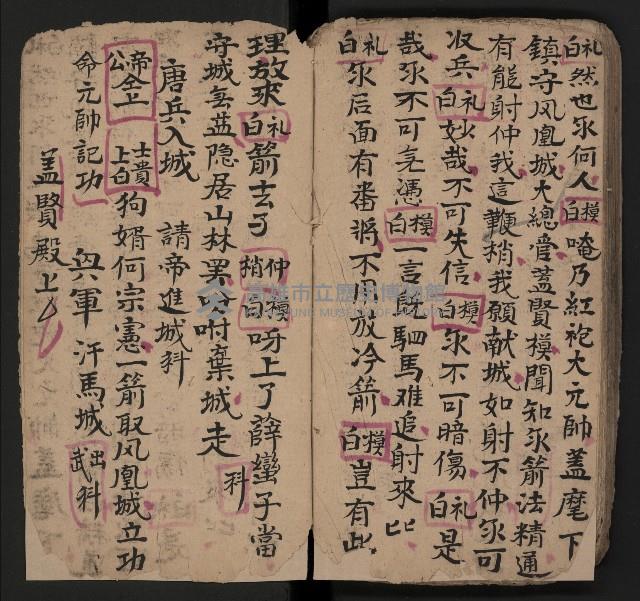 礼白然也尔何人模白唵乃紅袍大元帥蓋麾下
鎮守凤凰城大總管蓋賢模聞知尔箭法精通
有能射仲我這鞭梢我願献城如射不仲尔可
收兵礼白妙哉不可失信模白尔不可暗傷礼白是
哉尔不可為憑模白一言既出駟馬难追射來比
礼白尔后面有番將不可放冷箭模白豈有此
理放來礼白箭去了仲梢模白呀上了薛蠻子當
守城無益隐居山林罢咐棄城走科
唐兵入城 請帝進城科
帝公仝上士貴上白狗婿何宗憲一箭取凤凰城立功
命元帥記功 兵軍 汗馬城 出武科
蓋賢殿上
高雄市立歷史博物館